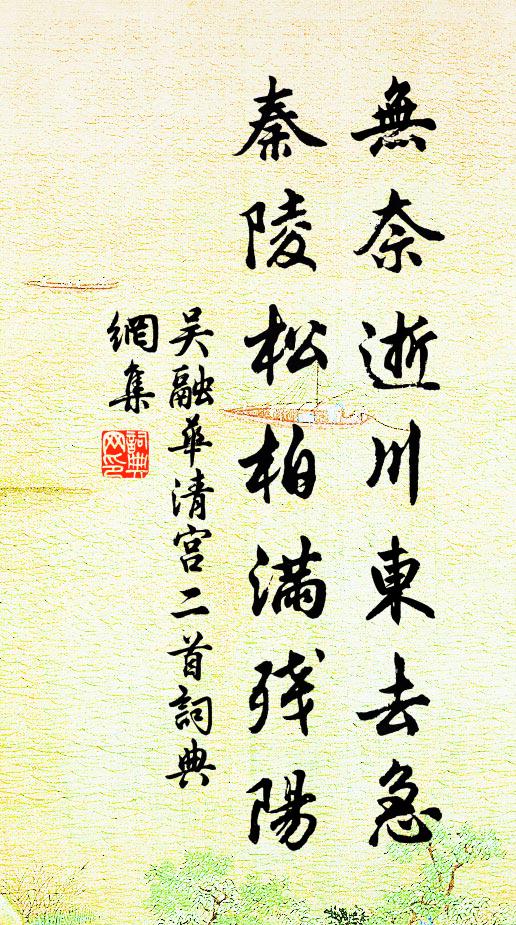 無奈逝川東去急
秦陵松柏滿殘陽
吴融華清宫二首詞典
網集
詞典
网印